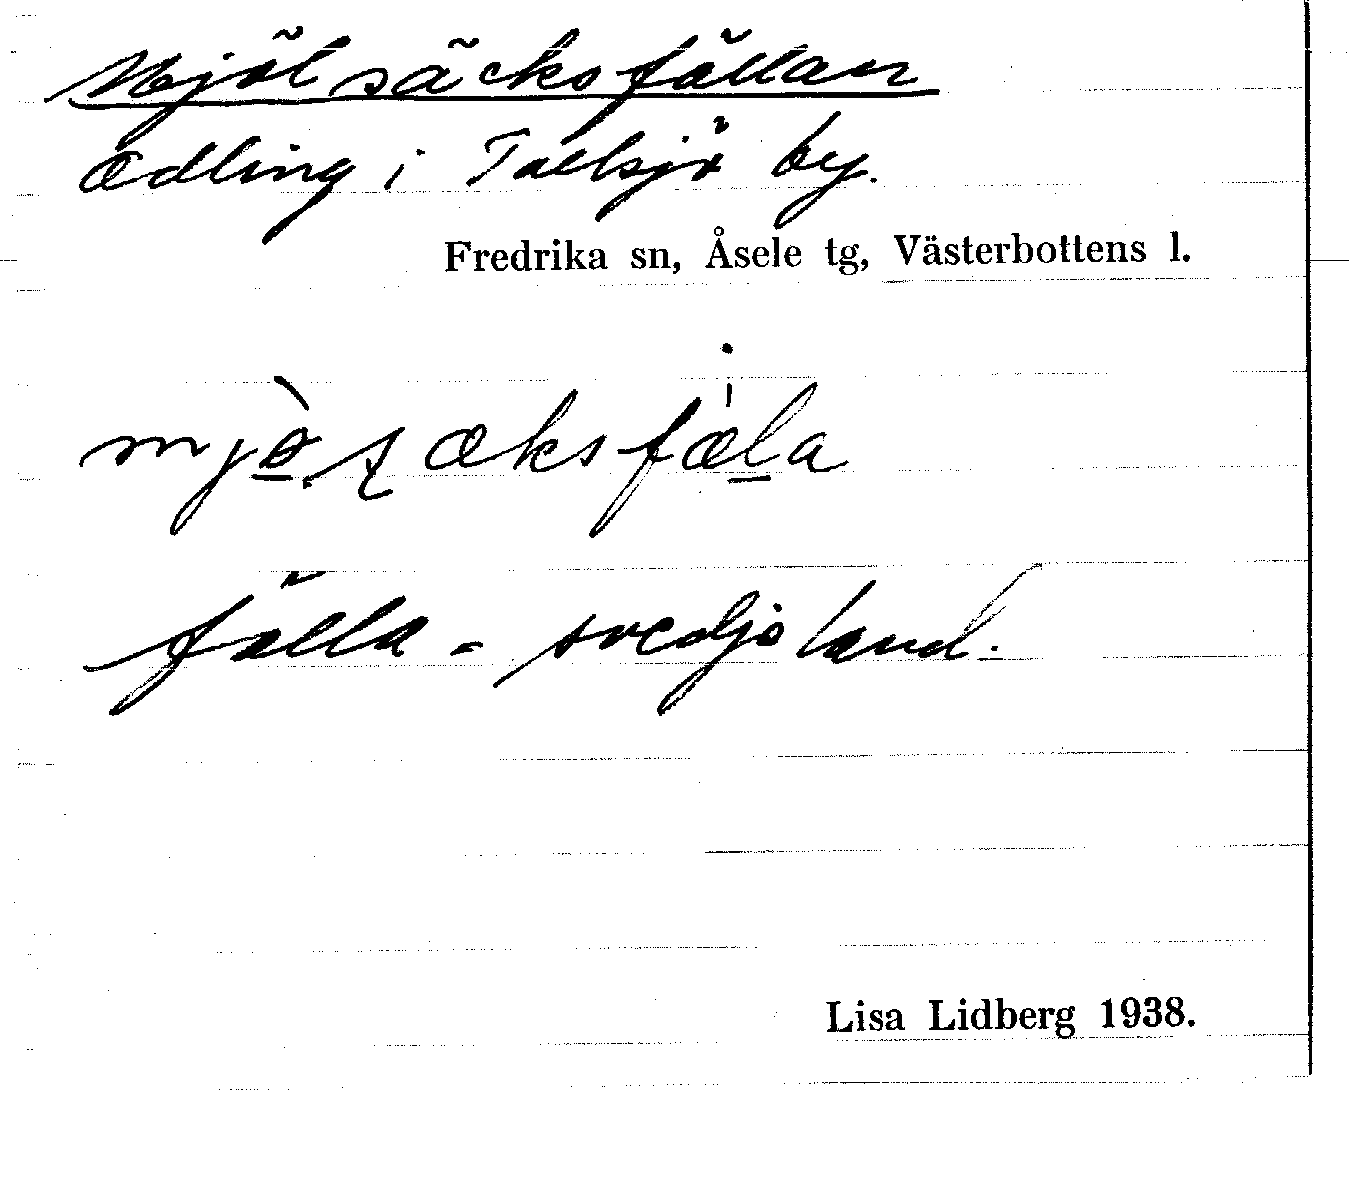 Mjölsäcksfällan
odling i Tallsjö by.
Fredrika sn, Åsele tg, Västerbottens l.
fälla - svedjeland.
Lisa Lidberg 1938.